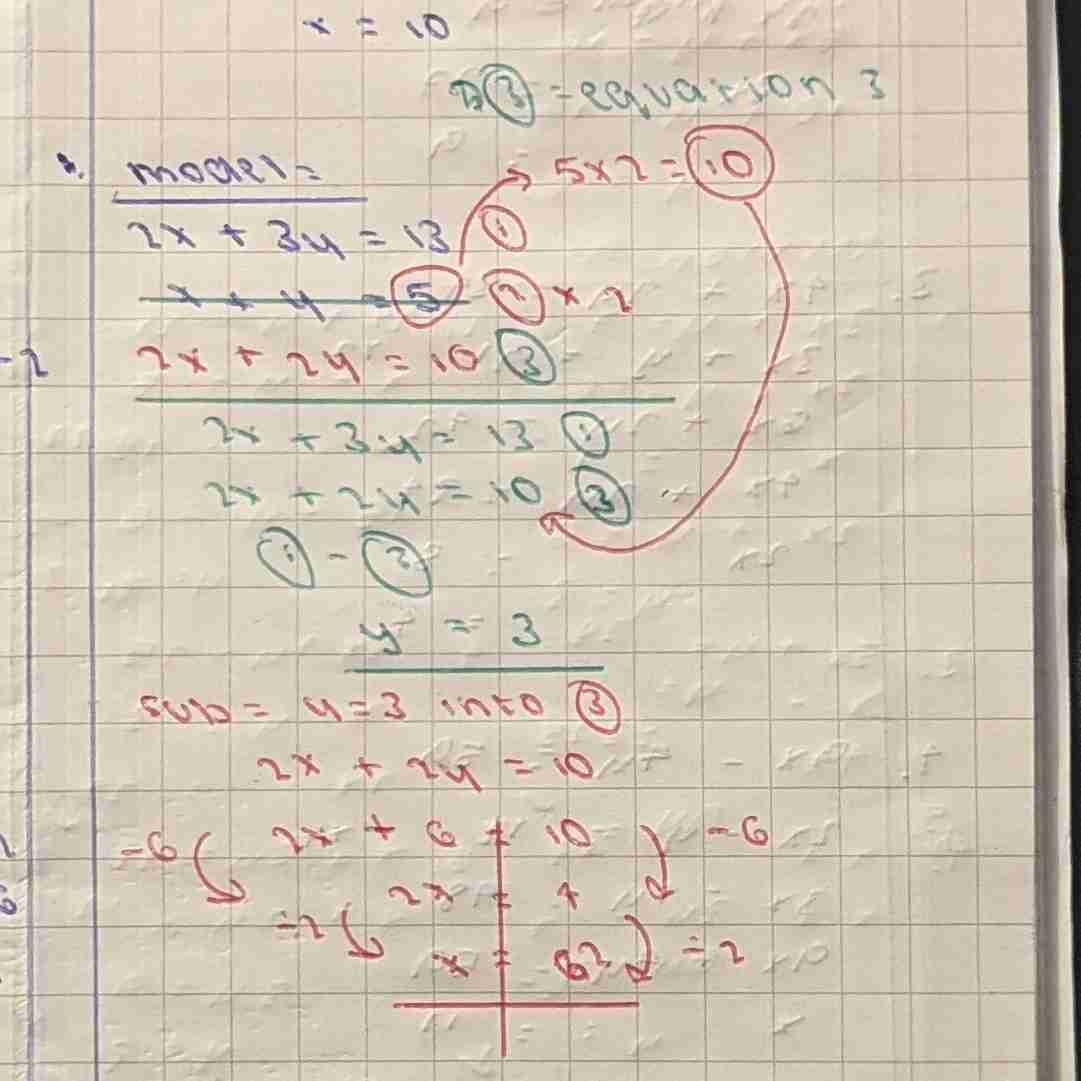 x = 10
③ = equation 3
model =
5x2 = 10
2x + 3y = 13 ①
x + y = 5 ② x 2
2x + 2y = 10 ③
2x + 3y = 13 ①
2x + 2y = 10 ③
① - ③
y = 3
sub = y=3 into ③
2x + 2y = 10
-6 2x + 6 = 10 -6
÷2 2x = 4
x = 2 ÷2
-2